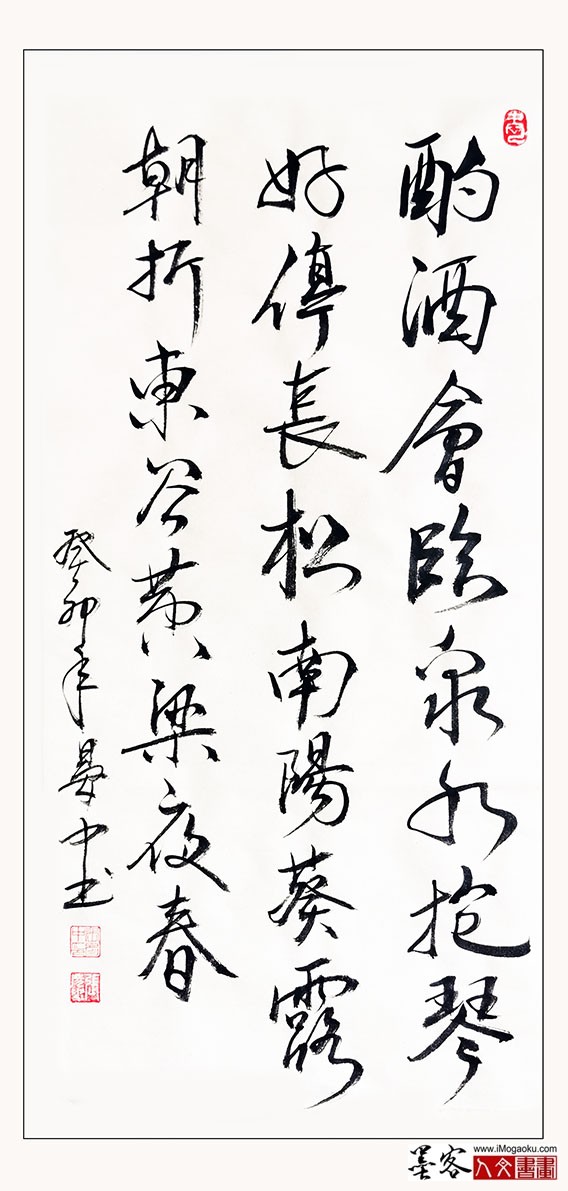 酌酒會臨泉水抱琴
好停長松南陽葵露
朝折東谷黃梁夜春
癸卯年晏中书
墨客
www.iMogaoku.com
人文書畫